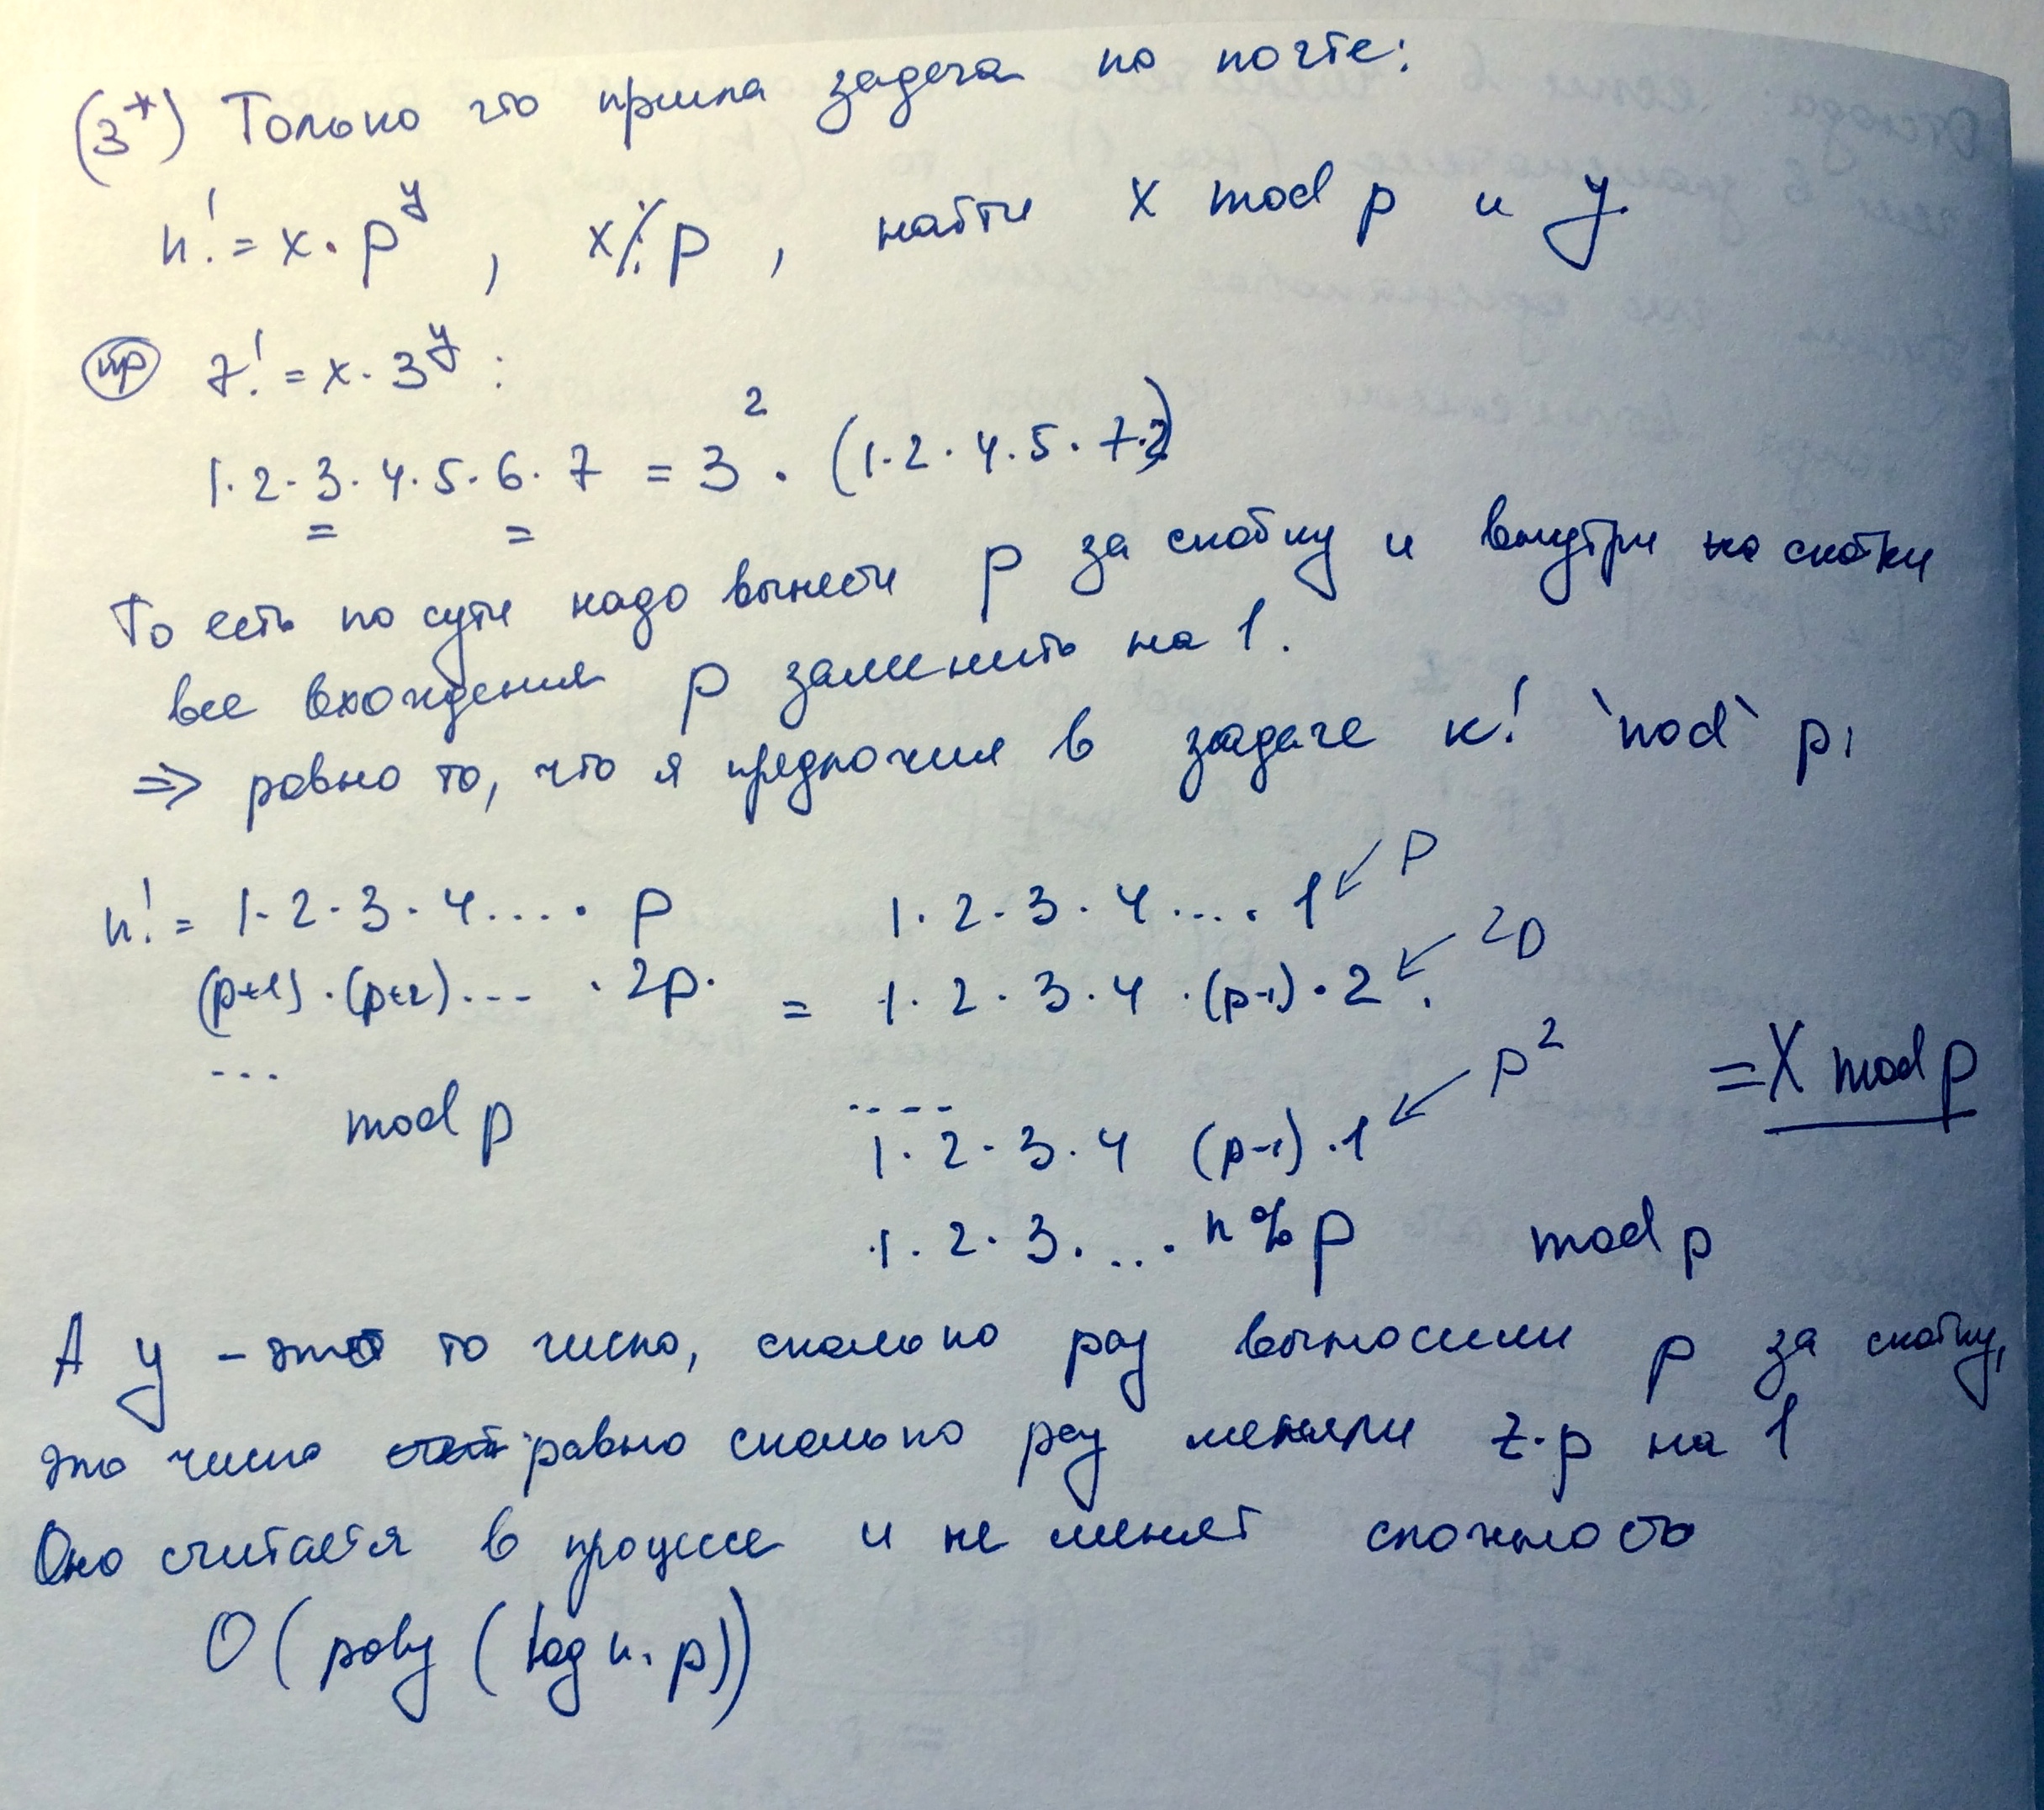 (3*) Только что пришла задача по почте:
n! = x · p^y , x⋮̸p , найти x mod p и y.
(пр) 7! = x · 3^y :
1·2·3·4·5·6·7 = 3^2 · (1·2·4·5·7·2)
То есть по сути надо вынести p за скобку и внутри скобки
все вхождения p заменить на 1.
⇒ ровно то, что я предложил в задаче k! `mod` p,
n! = 1·2·3·4....· p 1·2·3·4....·1 ↙ p
(p+1)·(p+2)... ·2p· = 1·2·3·4 ·(p-1)·2 ↙ 2p .
... .... ↙ p^2 = X mod p
mod p 1·2·3·4 (p-1)·1
1·2·3·...· n%p mod p
А y - это то число, сколько раз выносили p за скобку,
это число равно сколько раз меняли z·p на 1
Оно считается в процессе и не меняет сложность
O(poly(log n, p))